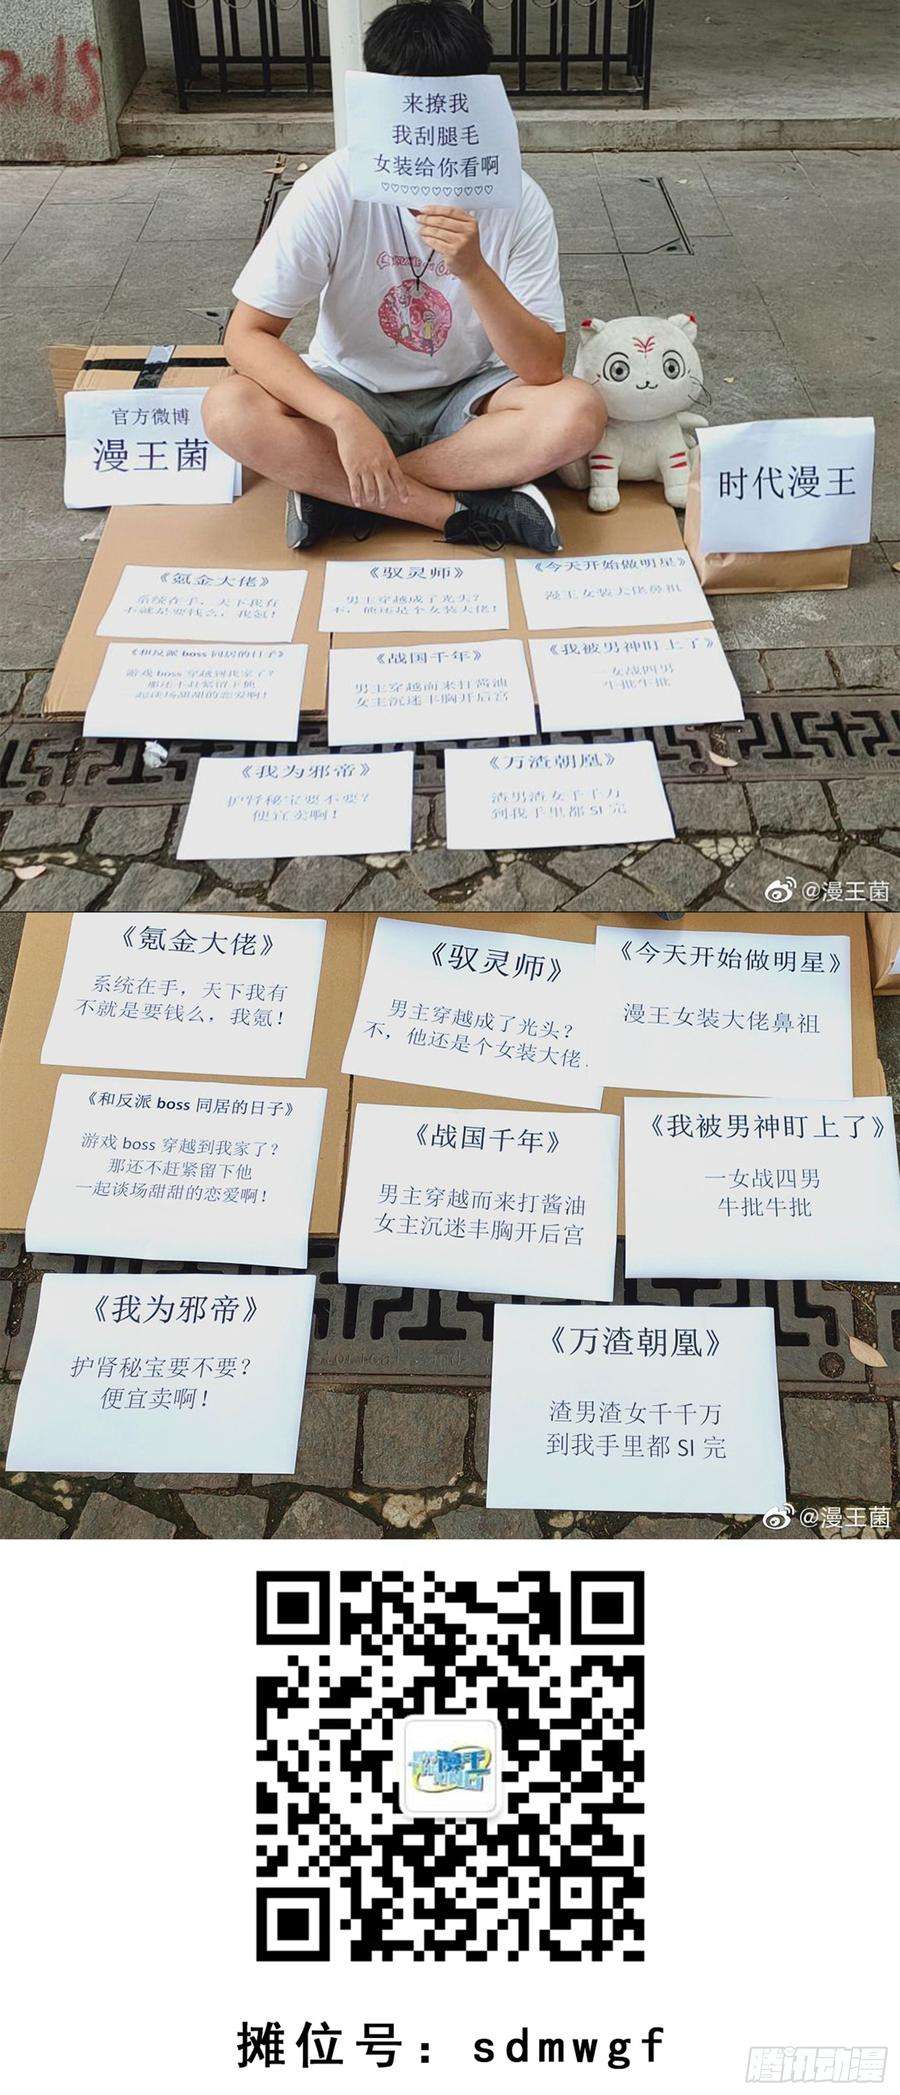 2.15
来撩我
我刮腿毛
女装给你看啊
♡♡♡♡♡♡♡♡♡♡
官方微博
漫王菌
时代漫王
《氪金大佬》
系统在手，天下我有
不就是要钱么，我氪！
《驭灵师》
男主穿越成了光头？
不，他还是个女装大佬！
《今天开始做明星》
漫王女装大佬鼻祖
《和反派 boss 同居的日子》
游戏 boss 穿越到我家了？
那还不赶紧留下他
一起谈场甜甜的恋爱啊！
《战国千年》
男主穿越而来打酱油
女主沉迷丰胸开后宫
《我被男神盯上了》
一女战四男
牛批牛批
《我为邪帝》
护肾秘宝要不要？
便宜卖啊！
《万渣朝凰》
渣男渣女千千万
到我手里都 SI 完
@漫王菌
《氪金大佬》
系统在手，天下我有
不就是要钱么，我氪！
《驭灵师》
男主穿越成了光头？
不，他还是个女装大佬
《今天开始做明星》
漫王女装大佬鼻祖
《和反派 boss 同居的日子》
游戏 boss 穿越到我家了？
那还不赶紧留下他
一起谈场甜甜的恋爱啊！
《战国千年》
男主穿越而来打酱油
女主沉迷丰胸开后宫
《我被男神盯上了》
一女战四男
牛批牛批
《我为邪帝》
护肾秘宝要不要？
便宜卖啊！
《万渣朝凰》
渣男渣女千千万
到我手里都 SI 完
@漫王菌
摊位号：sdmwgf
腾讯动漫